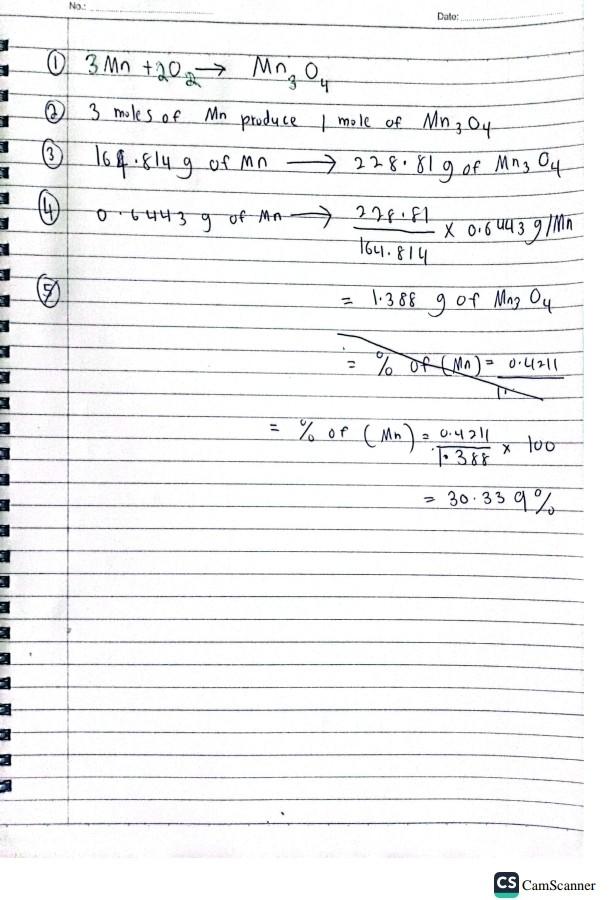 No.: Date:
① 3 Mn + 2O₂ → Mn₃O₄
② 3 moles of Mn produce 1 mole of Mn₃O₄
③ 164.814 g of Mn → 228.81 g of Mn₃O₄
④ 0.6443 g of Mn → 228.81 / 164.814 × 0.6443 g/Mn
⑤ = 1.388 g of Mn₃O₄
= % of (Mn) = 0.4211 / 1.
= % of (Mn) = 0.4211 / 1.388 × 100
= 30.339%
CS CamScanner